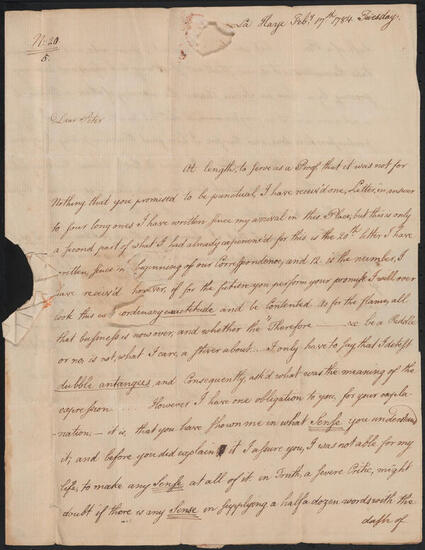 La Haye Feby 17th 1784. Tuesday.
No: 20.
5.
Dear Peter
At length, to serve as a Proof that it was not for
Nothing that you promised to be punctual, I have receiv'd one, Letter, in answer
to four long ones I have written since my arrival in this Place; but this is only
a second part of what I had already experienc'd for this is the 20th letter I have
written, since beginning of our Correspondence, and 12 is the number, I
have receiv'd however, if for the future you perform your promise I will over
look this ordinary exactitude and be Contented. As for the flame, all
that business is now over, and whether the "Therefore — &c be a Riddle
or no, is not, what I care, a stiver about... I only have to say that I detest
dubble antangers and Consequently, ask'd what was the meaning of the
expression . . . . . However I have one obligation to you, for your expla-
nation; — it is, that you have shown me in what Sense you understand
it; and before you did explain it I assure you, I was not able for my
life, to make any Sense at all of it. in Truth, a severe Critic, might
doubt if there is any Sense in supplying a half a dozen words worth the
dash of